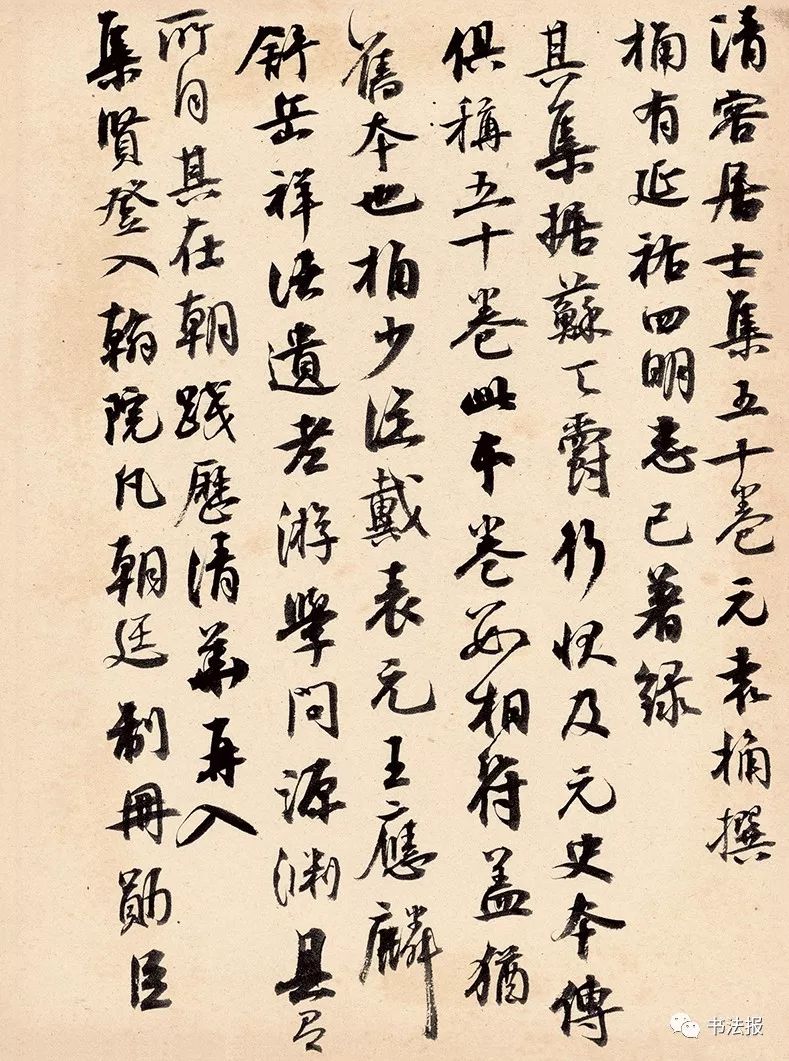 清容居士集五十卷元袁桷撰
桷有延祐四明志已著録
其集据蘇天爵行状及元史本傳
俱稱五十卷此本卷数相符盖猶
舊本也桷少従戴表元王應麟
舒岳祥諸遺老游學問源渊具有
所自其在朝踐歷清華再入
集賢登入翰院凡朝廷制冊勛臣
书法报